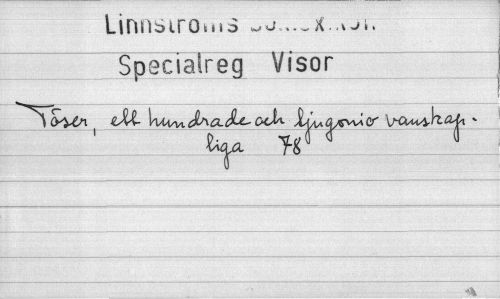 Linnströms
Specialreg Visor
Töser, ett hundrade och tjugonio vanskap-
liga 78